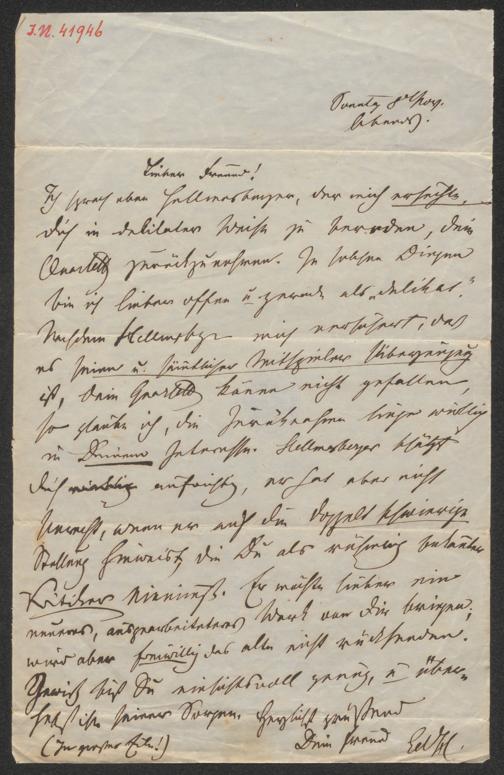 I.N. 41946
Sonntag 8 Nov.
Abends.
Lieber Freund!
Ich sprach eben Hellmesberger, der mich ersuchte,
Dich in delikater Weise zu bereden, Dein
Quartett zurückzunehmen. In solchen Dingen
bin ich lieber offen u. gerade als „delikat".
Nachdem Hellmesbgr mich versichert, daß
es seine u. sämtlicher Mitspieler Überzeugung
ist, Dein Quartett könne nicht gefallen,
so glaube ich, die Zurücknahme liege wirklich
in Deinem Interesse. Hellmesberger schätzt
Dich aufrichtig, er hat aber nicht
Unrecht, wenn er auf die doppelt schwierige
Stellung hinweist, die Du als rühmlich bekannter
Kritiker einnimmst. Er möchte lieber ein
neueres, ausgearbeiteteres Werk von Dir bringen,
wird aber freiwillig das alte nicht rücksenden.
Gewiß bist Du einsichtsvoll genug, u über-
hebst ihn seiner Sorgen. Herzlich grüßend
(In großer Eile!) Dein Freund